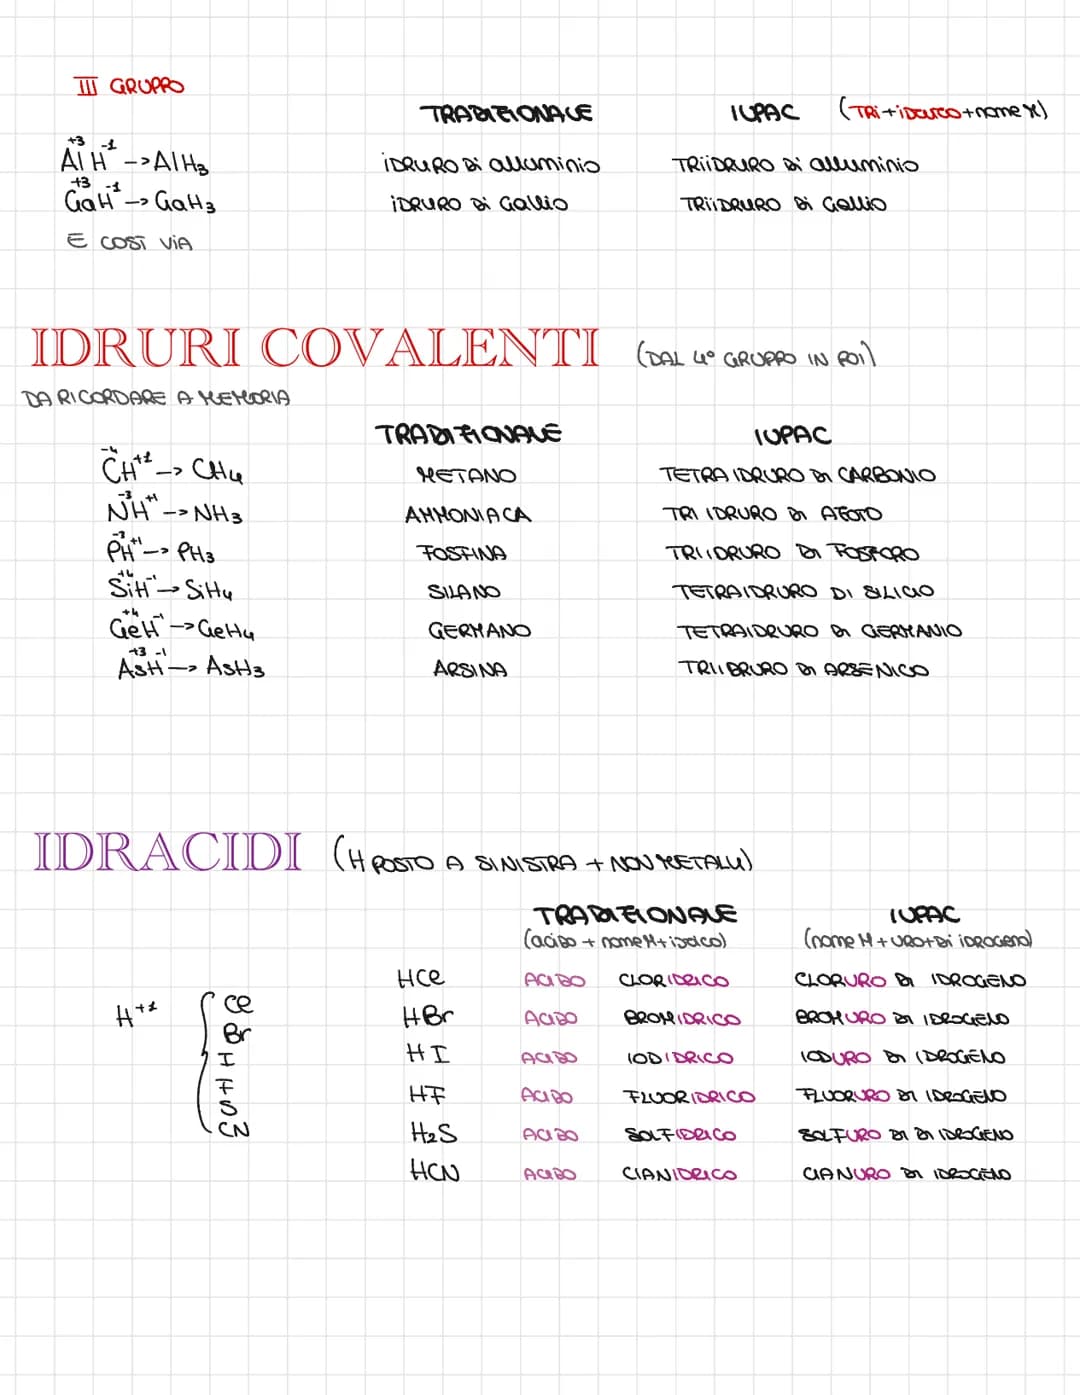 III GRUPPO
TRADIZIONALE IUPAC (TRI+iDRURO+nome M)
+3 -1
AlH -> AlH3 iDRURO Di alluminio TRiiDRURO Di alluminio
+3 -1
GaH -> GaH3 iDRURO Di Gallio TRiiDRURO Di Gallio
E COSÌ ViA
IDRURI COVALENTI (DAL 4° GRUPPO IN POI)
DA RICORDARE A MEMORIA
TRADIZIONALE IUPAC
-4 +1
CH -> CH4 METANO TETRA IDRURO DI CARBONIO
-3 +1
NH -> NH3 AMMONIACA TRI IDRURO DI AZOTO
-3 +1
PH -> PH3 FOSFINA TRIIDRURO DI FOSFORO
+4 -1
SiH -> SiH4 SILANO TETRAIDRURO DI SILICIO
+4 -1
GeH -> GeH4 GERMANO TETRAIDRURO DI GERMANIO
+3 -1
AsH -> AsH3 ARSINA TRIIDRURO DI ARSENICO
IDRACIDI (H POSTO A SINISTRA + NON METALLI)
TRADIZIONALE IUPAC
(aciDo + nome M + iDrico) (nome M + URO + Di iDROGENO)
HCl ACIDO CLORIDRICO CLORURO DI IDROGENO
H+1 Cl
HBr ACIDO BROMIDRICO BROMURO DI IDROGENO
Br
HI ACIDO IODIDRICO IODURO DI IDROGENO
I
HF ACIDO FLUORIDRICO FLUORURO DI IDROGENO
F
S
H2S ACIDO SOLFIDRICO SOLFURO DI DI IDROGENO
CN
HCN ACIDO CIANIDRICO CIANURO DI IDROGENO